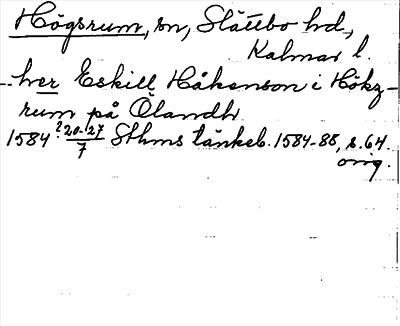 Högsrum, sn, Slättbo hd.,
Kalmar l.
her Eskill Håkenson i Hökz-
rum på Ölandh
1584 ? 20-27/7 Sthms tänkeb. 1584-88, s. 64.
orig.